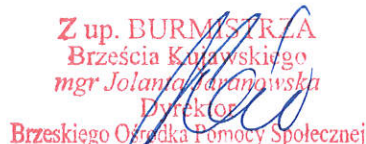 Z up. BURMISTRZA
Brześcia Kujawskiego
mgr Jolanta Jaranowska
Dyrektor
Brzeskiego Ośrodka Pomocy Społecznej